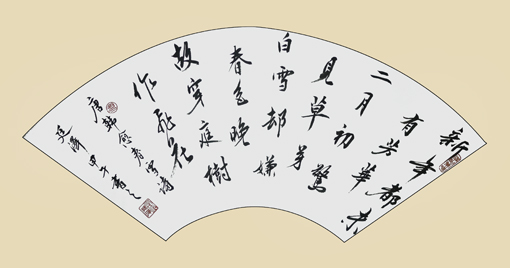 新年都未
有芳華
二月初驚
見草芽
白雪却嫌
春色晚
故穿庭樹
作飛花
唐韓愈春雪詩
甲午書之